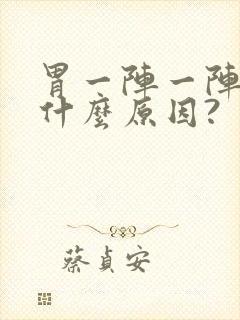 胃一陣一陣
什麼原因?
蔡貞安